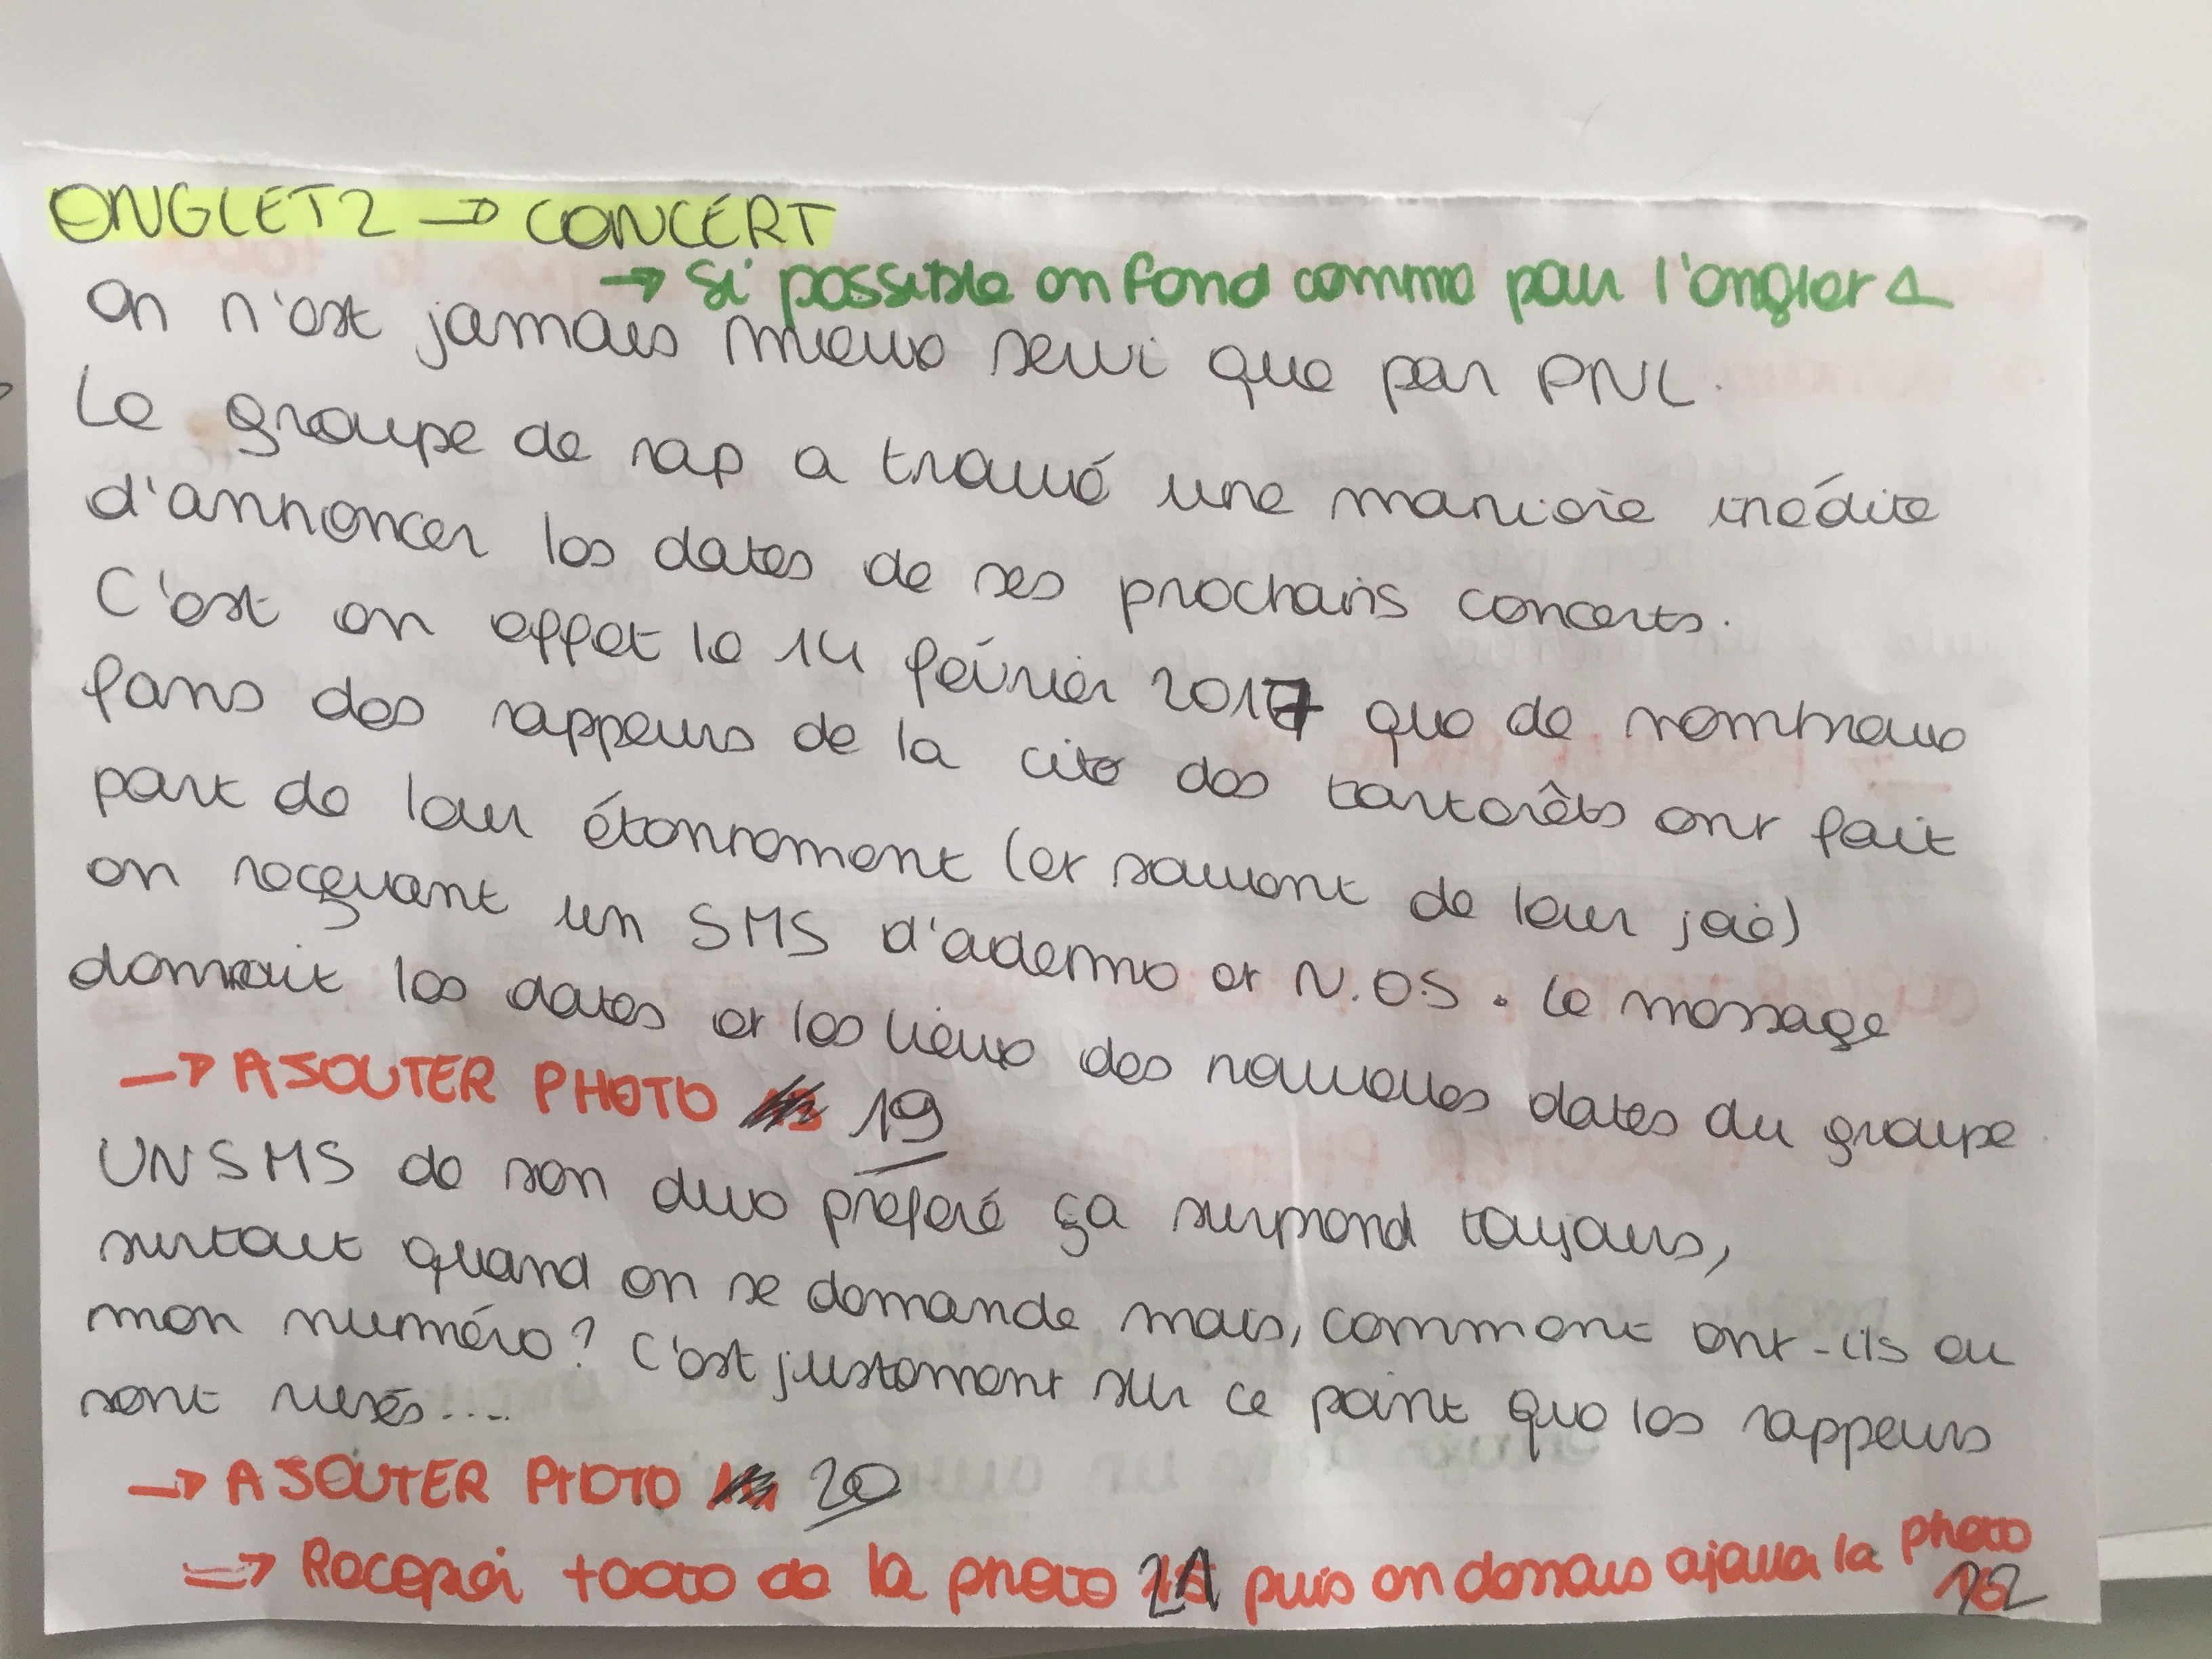 ONGLET 2 → CONCERT
→ Si possible on fond comme pour l'onglet 1
On n'est jamais mieux servi que par PNL.
Le groupe de rap a trouvé une manière inédite
d'annoncer les dates de ses prochains concerts.
C'est en effet le 14 février 2017 que de nombreux
fans des rappeurs de la cité des tarterêts ont fait
part de leur étonnement (et souvent de leur joie)
en recevant un SMS d'ademo et N.O.S. le message
donnait les dates et les lieux des nouvelles dates du groupe.
→ AJOUTER PHOTO 19
UN SMS de son duo préféré ça surprend toujours,
surtout quand on se demande mais, comment ont-ils eu
mon numéro ? C'est justement sur ce point que les rappeurs
sont rusés....
→ AJOUTER PHOTO 20
⇒ Recopier texte de la photo 21 puis en dessous ajouter la photo